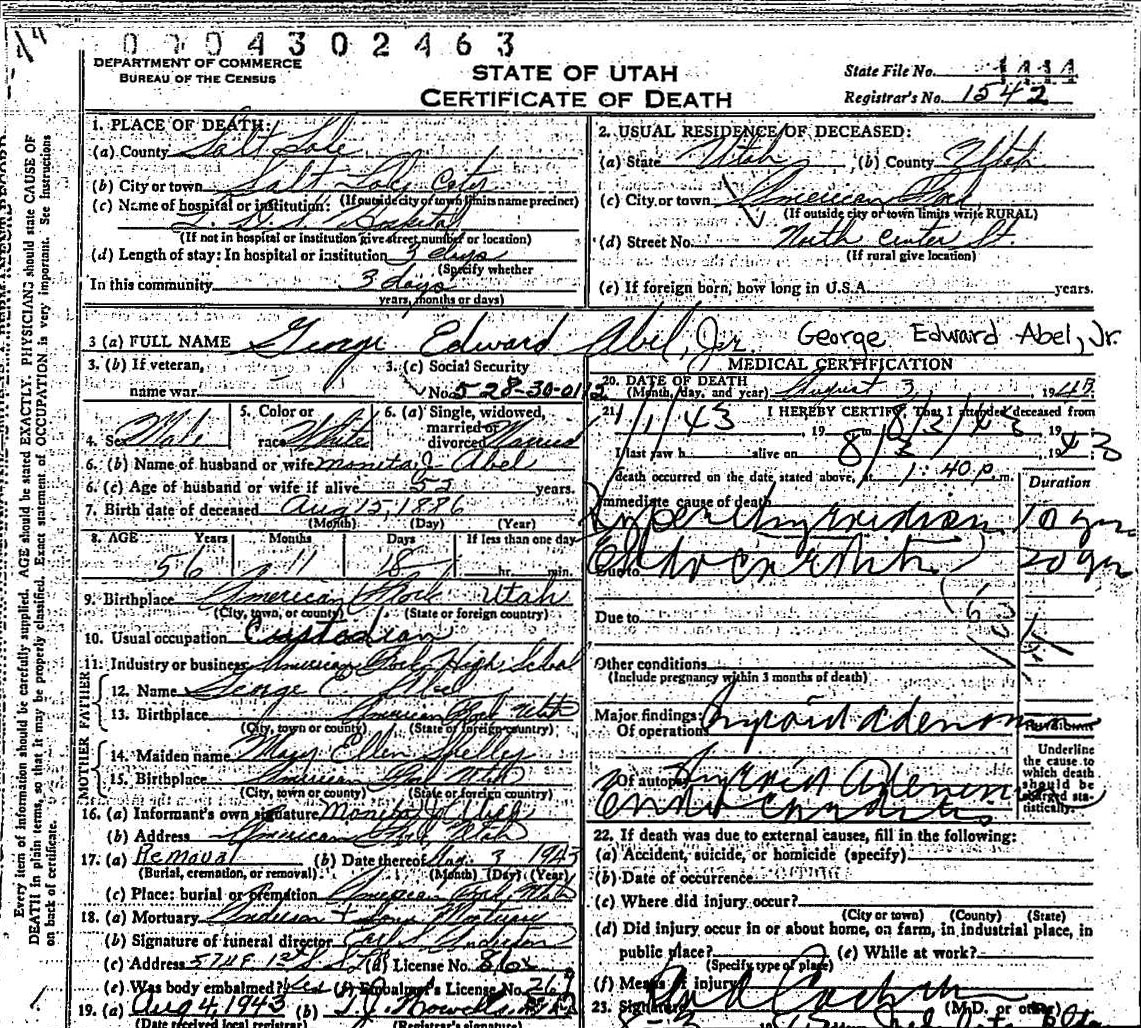 0 7 0 4 3 0 2 4 6 3
DEPARTMENT OF COMMERCE
BUREAU OF THE CENSUS
STATE OF UTAH
CERTIFICATE OF DEATH
State File No.
Registrar's No. 1542
1. PLACE OF DEATH:
(a) County Salt Lake
(b) City or town Salt Lake City
(If outside city or town limits name precinct)
(c) Name of hospital or institution:
L. D. S. Hospital
(If not in hospital or institution give street number or location)
(d) Length of stay: In hospital or institution 3 days
(Specify whether
In this community 3 days
years, months or days)
2. USUAL RESIDENCE OF DECEASED:
(a) State Utah, (b) County Utah
(c) City or town American Fork
(If outside city or town limits write RURAL)
(d) Street No. North Center St.
(If rural give location)
(e) If foreign born, how long in U.S.A. years.
3 (a) FULL NAME George Edward Abel, Jr. George Edward Abel, Jr.
3. (b) If veteran,
name war
3. (c) Social Security
No. 528-30-0112
4. Sex Male
5. Color or
race White
6. (a) Single, widowed,
married or
divorced Married
6. (b) Name of husband or wife Moneta J. Abel
6. (c) Age of husband or wife if alive 52 years.
7. Birth date of deceased Aug 15, 1886
(Month) (Day) (Year)
8. AGE Years Months Days If less than one day
56 11 18 hr. min.
9. Birthplace American Fork Utah
(City, town, or county) (State or foreign country)
10. Usual occupation Custodian
11. Industry or business American Fork High School
FATHER
12. Name George E. Abel
13. Birthplace American Fork Utah
(City, town or county) (State or foreign country)
MOTHER
14. Maiden name Mary Ellen Shelley
15. Birthplace American Fork Utah
(City, town or county) (State or foreign country)
16. (a) Informant's own signature Moneta J. Abel
(b) Address American Fork, Utah
17. (a) Removal (b) Date thereof Aug. 3, 1943
(Burial, cremation, or removal) (Month) (Day) (Year)
(c) Place: burial or cremation American Fork, Utah
18. (a) Mortuary Anderson & Sons Mortuary
(b) Signature of funeral director Earl S. Anderson
(c) Address (d) License No.
(e) Was body embalmed? Yes (f) Embalmer's License No.
19. (a) Aug 4, 1943 (b) T. J. Howells
(Date received local registrar) (Registrar's signature)
MEDICAL CERTIFICATION
20. DATE OF DEATH
(Month, day, and year) August 3, 1943
21. I HEREBY CERTIFY, That I attended deceased from
1/1/43, 19 to 8/3/43, 19
I last saw h alive on 8/3, 1943
death occurred on the date stated above, at 1:40 p. m.
Duration
Immediate cause of death
Hyperthyroidism 10 yrs
Endocarditis 20 yrs
Due to
Due to
Other conditions
(Include pregnancy within 3 months of death)
Major findings:
Of operations Thyroid adenoma
Of autopsy Thyroid Adenoma
Endocarditis
Underline
the cause to
which death
should be
charged sta-
tistically.
22. If death was due to external causes, fill in the following:
(a) Accident, suicide, or homicide (specify)
(b) Date of occurrence
(c) Where did injury occur?
(City or town) (County) (State)
(d) Did injury occur in or about home, on farm, in industrial place, in
public place? (e) While at work?
(Specify type of place)
(f) Means of injury
23. Signature (M.D. or other)
Every item of information should be carefully supplied. AGE should be stated EXACTLY. PHYSICIANS should state CAUSE OF
DEATH in plain terms, so that it may be properly classified. Exact statement of OCCUPATION is very important. See instructions
on back of certificate.